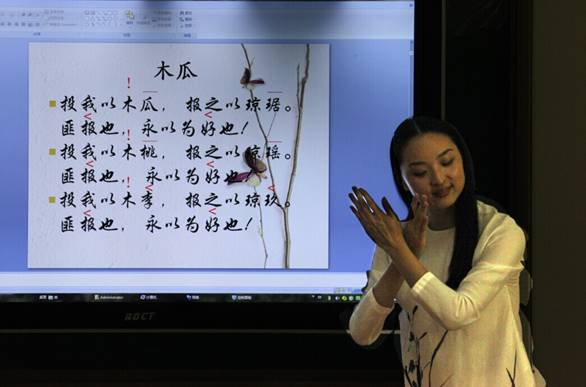 木瓜
投我以木瓜，报之以琼琚。
匪报也，永以为好也！
投我以木桃，报之以琼瑶。
匪报也，永以为好也！
投我以木李，报之以琼玖。
匪报也，永以为好也！
Administrator
BOCT